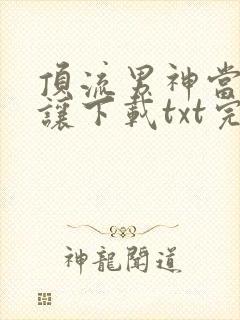 頂流男神當
讓下載txt完
神龍聞道